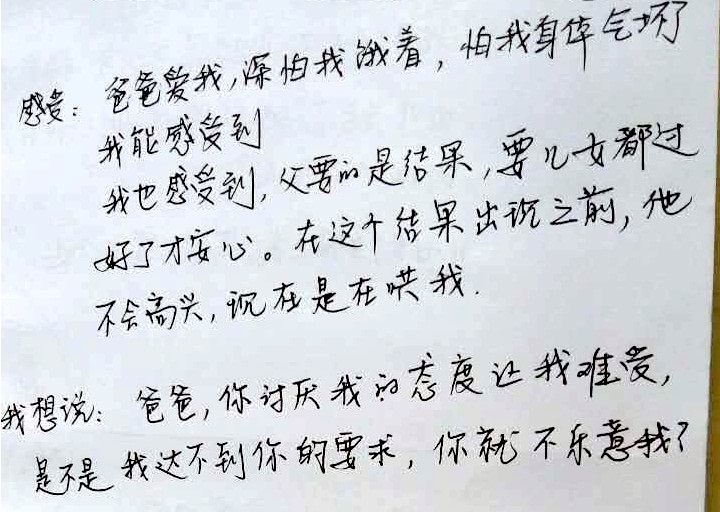 感受：爸爸爱我，深怕我饿着，怕我身体气坏了
我能感受到
我也感受到，父要的是结果，要儿女都过
好了才安心。在这个结果出现之前，他
不会高兴，现在是在哄我.
我想说：爸爸，你讨厌我的态度让我难受，
是不是我达不到你的要求，你就不乐意我？